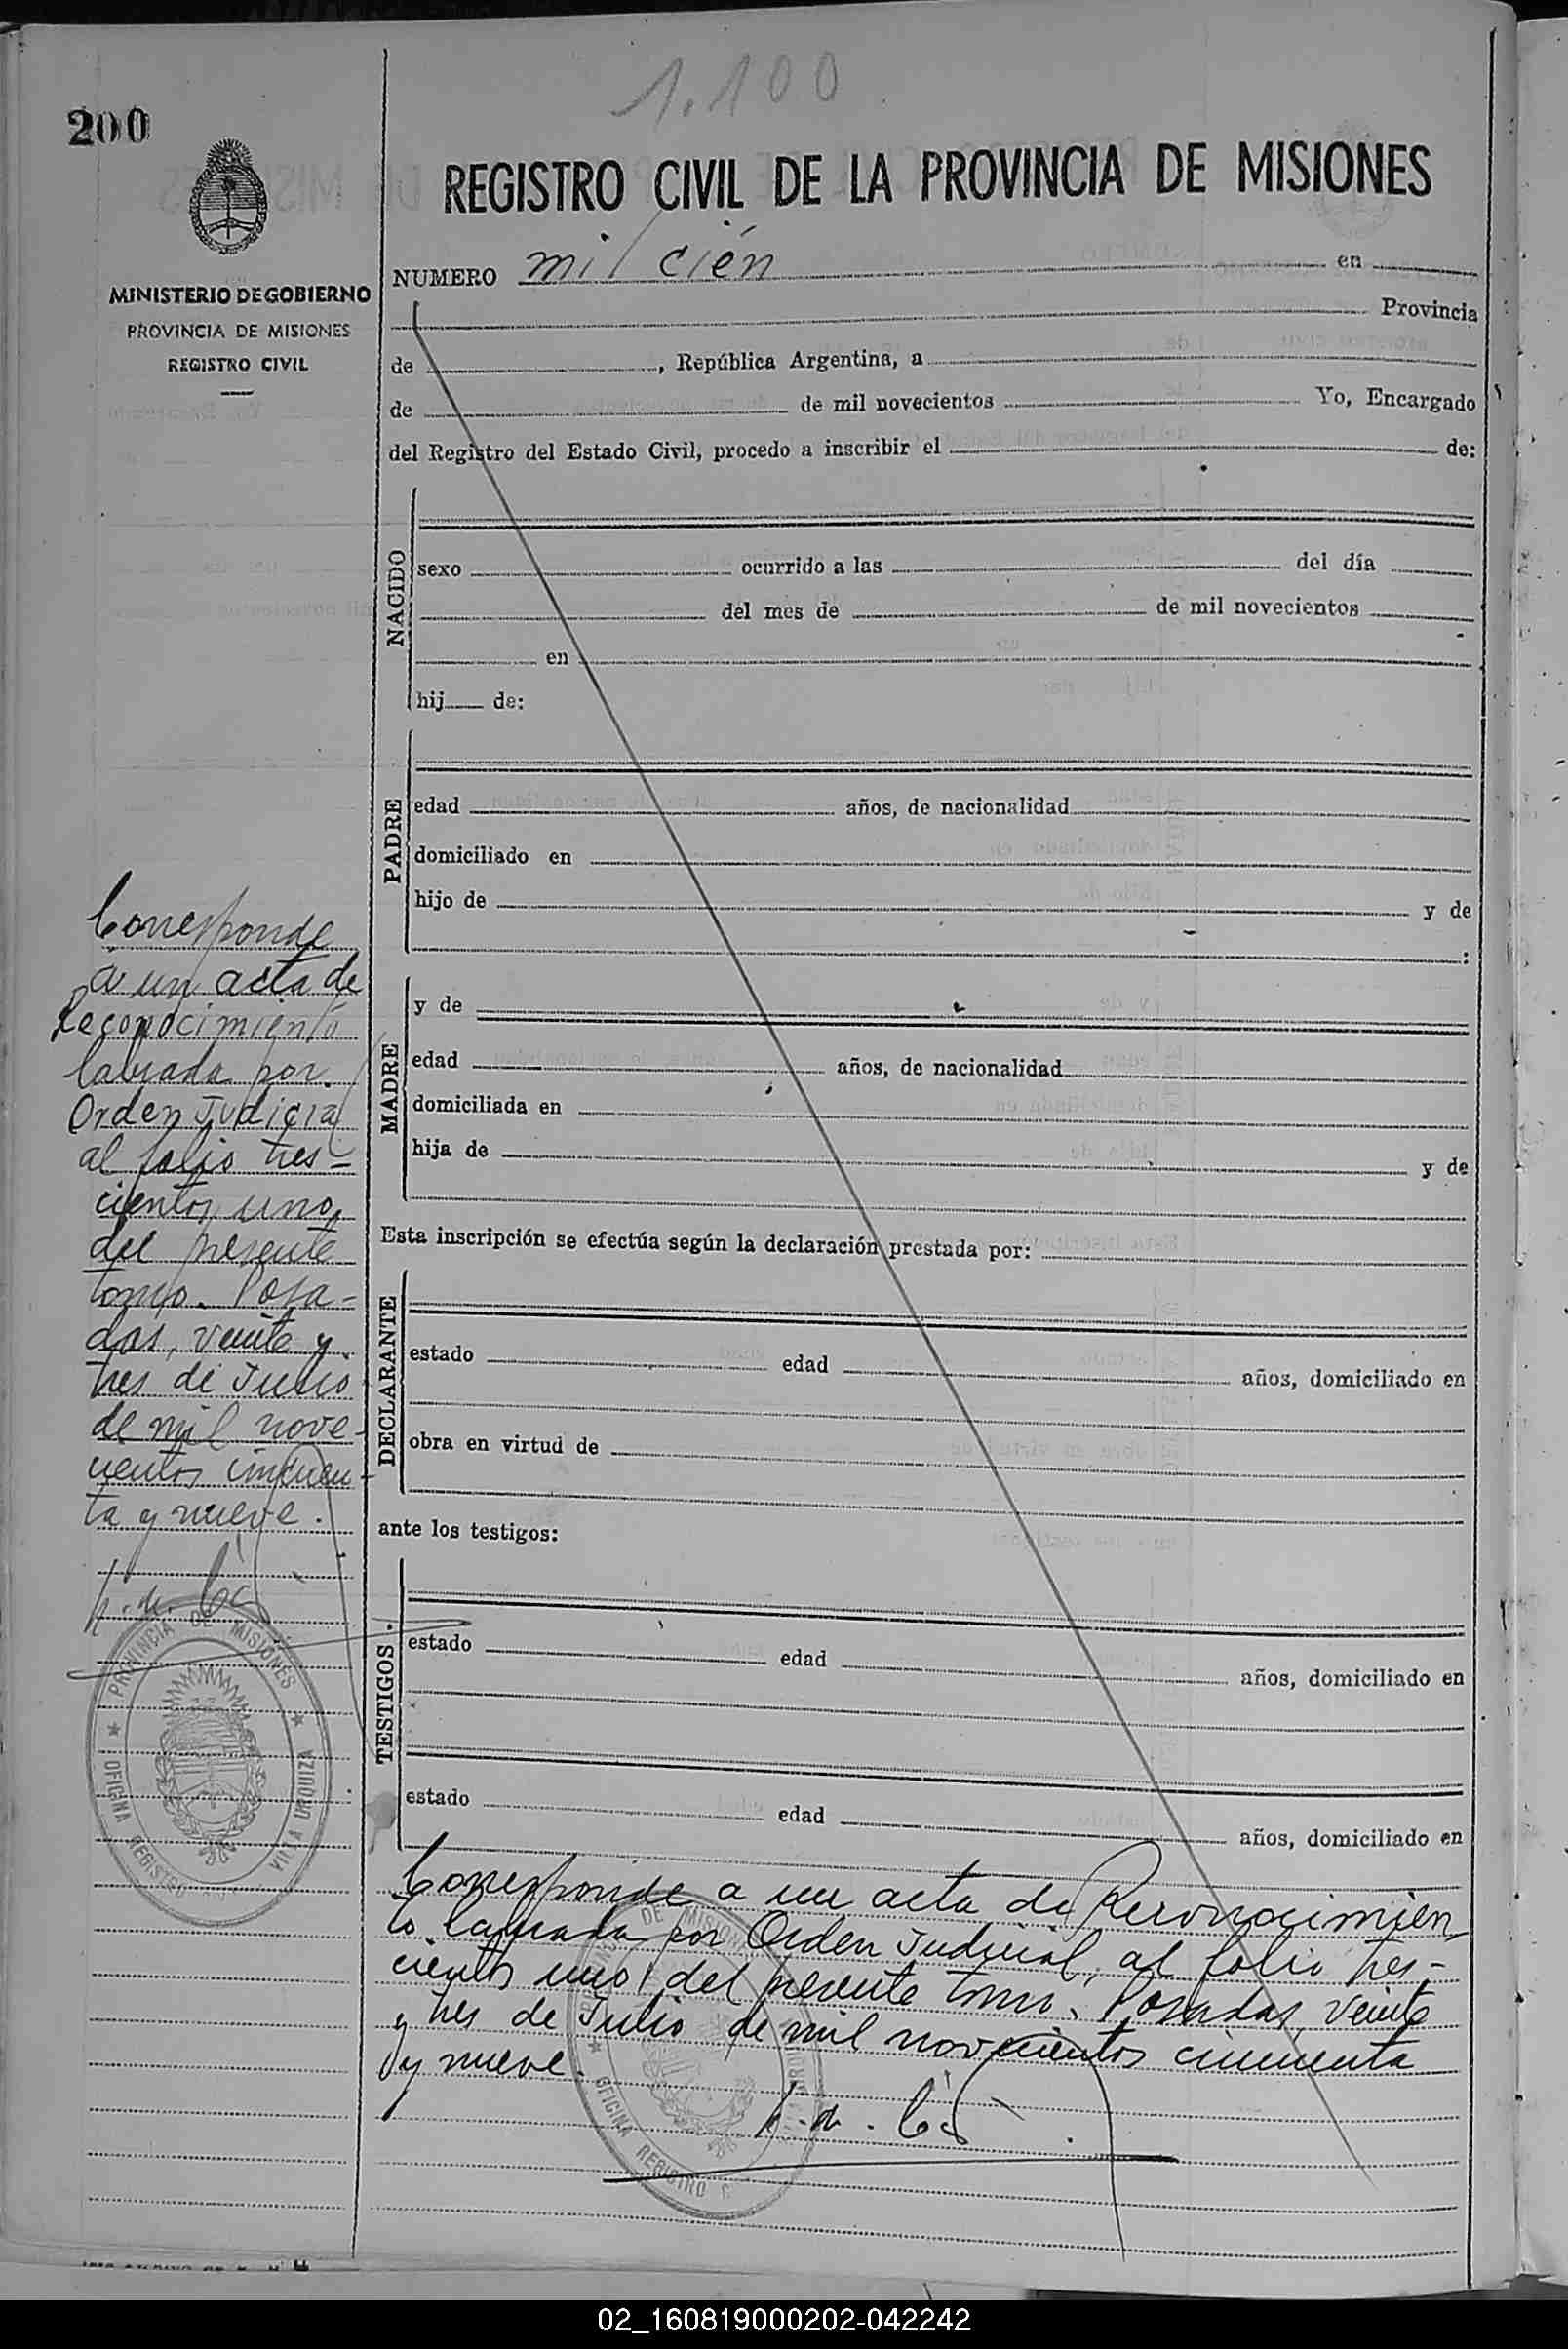 1.100
200
REGISTRO CIVIL DE LA PROVINCIA DE MISIONES
MINISTERIO DE GOBIERNO
PROVINCIA DE MISIONES
REGISTRO CIVIL
NUMERO mil cién en
Provincia
de , República Argentina, a
de de mil novecientos Yo, Encargado
del Registro del Estado Civil, procedo a inscribir el de:
NACIDO
sexo ocurrido a las del día
del mes de de mil novecientos
en
hij de:
PADRE
edad años, de nacionalidad
domiciliado en
hijo de y de
:
MADRE
y de
edad años, de nacionalidad
domiciliada en
hija de y de
Esta inscripción se efectúa según la declaración prestada por:
DECLARANTE
estado edad años, domiciliado en
obra en virtud de
ante los testigos:
TESTIGOS
estado edad años, domiciliado en
estado edad años, domiciliado en
Corresponde
a un acta de
Reconocimiento
labrada por
Orden Judicial
al folio tres-
cientos uno,
del presente
tomo. Posa-
das, veinte y
tres de Julio
de mil nove-
cientos cincuen-
ta y nueve.
PROVINCIA DE MISIONES
OFICINA REGISTRO
VILLA URQUIZA
Corresponde a un acta de Reconocimien
to labrada por Orden Judicial, al folio tres-
cientos uno del presente tomo. Posadas, veinte
y tres de Julio de mil novecientos cincuenta
y nueve.
DE MISIONES
OFICINA REGISTRO C
02_160819000202-042242